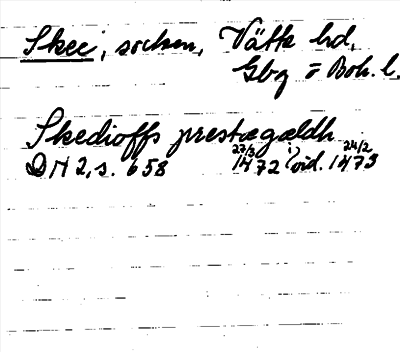 Skee, socken, Vätte hd,
Gbg o Boh. l.
Skedioffs prestægældh
27/3 24/2
DN 2, s. 658 1472 i vid. 1473